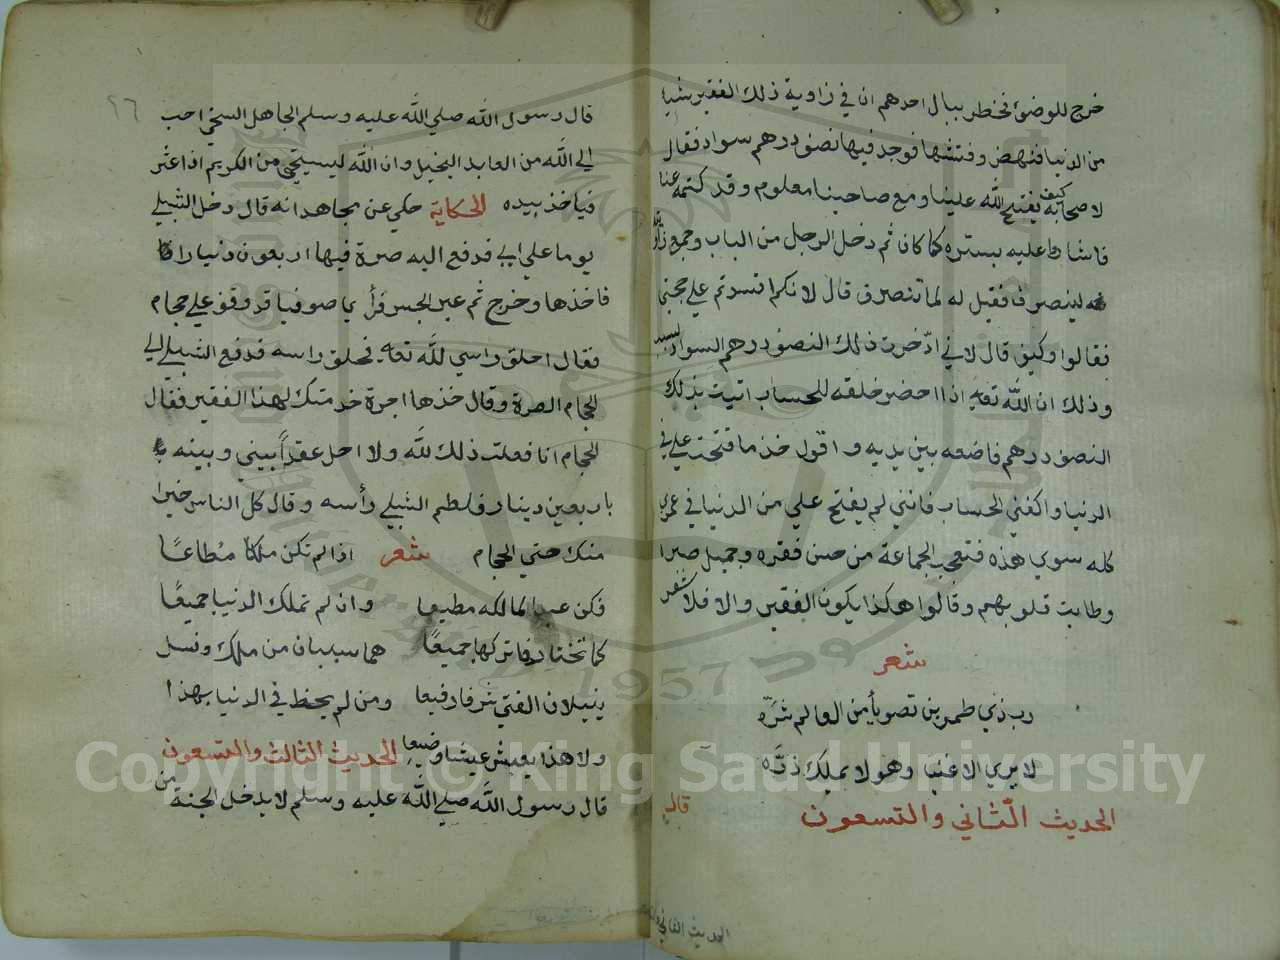 خرج للوضوء فخطر ببال احدهم ان في زاوية ذلك الفقير شيئا
من الدنيا فنهض وفتشها فوجد فيها نصف درهم سواد فقال
لاصحابه كيف يفتح الله علينا ومع صاحبنا معلوم وقد كتمه عنا
فاشاروا عليه بستره كما كان ثم دخل الرجل من الباب وجمع
لينصرف فقيل له لما تنصرف قال لانكم افسدتم علي حجتي
فقالوا وكيف قال لاني ادخرت ذلك النصف درهم السواد
وذلك ان الله تعالي اذا احضر خلقه للحساب اتيت بذلك
النصف درهم فاضعه بين يديه واقول خذ ما فتحت علي في
الدنيا واكفني الحساب فانني لم يفتح علي من الدنيا في عمري
كله سوي هذه فتعجب الجماعة من حسن فقره وجميل صبرا
وطابت قلوبهم وقالوا هكذا يكون الفقير والا فلا
شعر
رب ذي طمرين تصوبا من العالم شره
لا يري الاغنيا وهو لا يملك ذره
الحديث الثاني والتسعون قال
الحديث الثاني
٩٦
قال رسول الله صلي الله عليه وسلم الجاهل السخي احب
الي الله من العابد البخيل وان الله ليستحي من الكريم اذا عثر
فياخذ بيده الحكاية حكي عن مجاهد انه قال دخل الشبلي
يوما علي ابي فدفع اليه صرة فيها اربعون دينارا
فاخذها وخرج ثم عبر الجسر فرأي صوفيا قد وقف علي حجام
فقال احلق راسي لله تعالي فحلق راسه فدفع الشبلي الي
الحجام الصرة وقال خذها اجرة خدمتك لهذا الفقير فقال
الحجام انا فعلت ذلك لله ولا احل عقداً بيني وبينه
باربعين دينار فلطم الشبلي رأسه وقال كل الناس خيرا
منك حتي الحجام شعر اذا لم تكن ملكا مُطاعًا
فكن عبدا لمالكه مطيعا وان لم تملك الدنيا جميعًا
كما تختار فاتركها جميعًا هما سببان من ملك ونسك
ينيلان الفتي شرفا رفيعا ومن لم يحظ في الدنيا بهذا
ولا هذا يعيش عيشا وضيعا الحديث الثالث والتسعون
قال رسول الله صلي الله عليه وسلم لا يدخل الجنة من
Copyright © King Saud University
1957